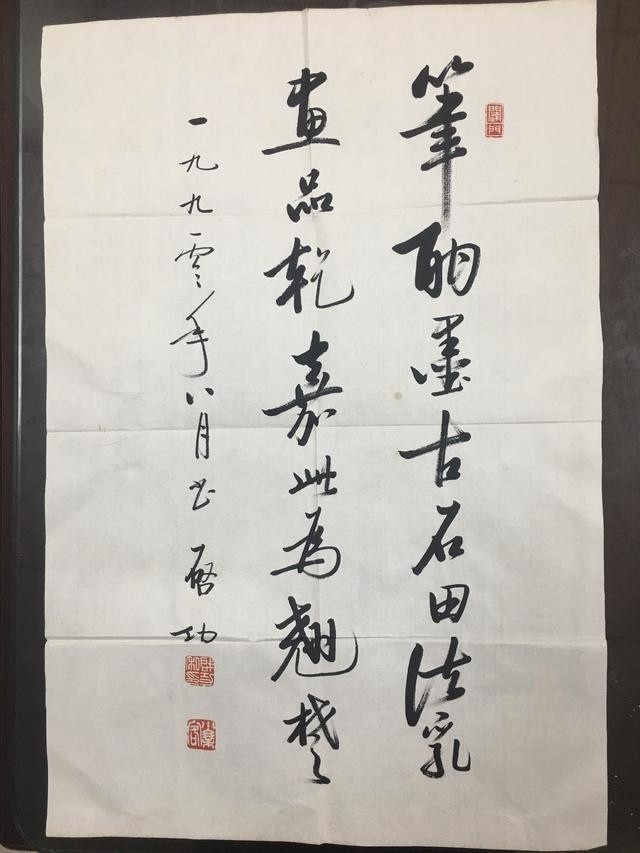 筆酣墨古石田法乳
畫品乾嘉此為翹楚
一九九零年八月書 啓功